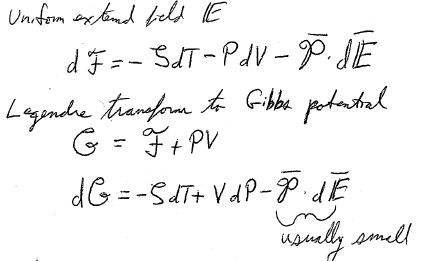 Uniform extend field E
dF = - SdT - PdV - P̄ · dĒ
Legendre transform to Gibbs potential
G = F + PV
dG = - SdT + VdP - P̄ · dĒ
usually small